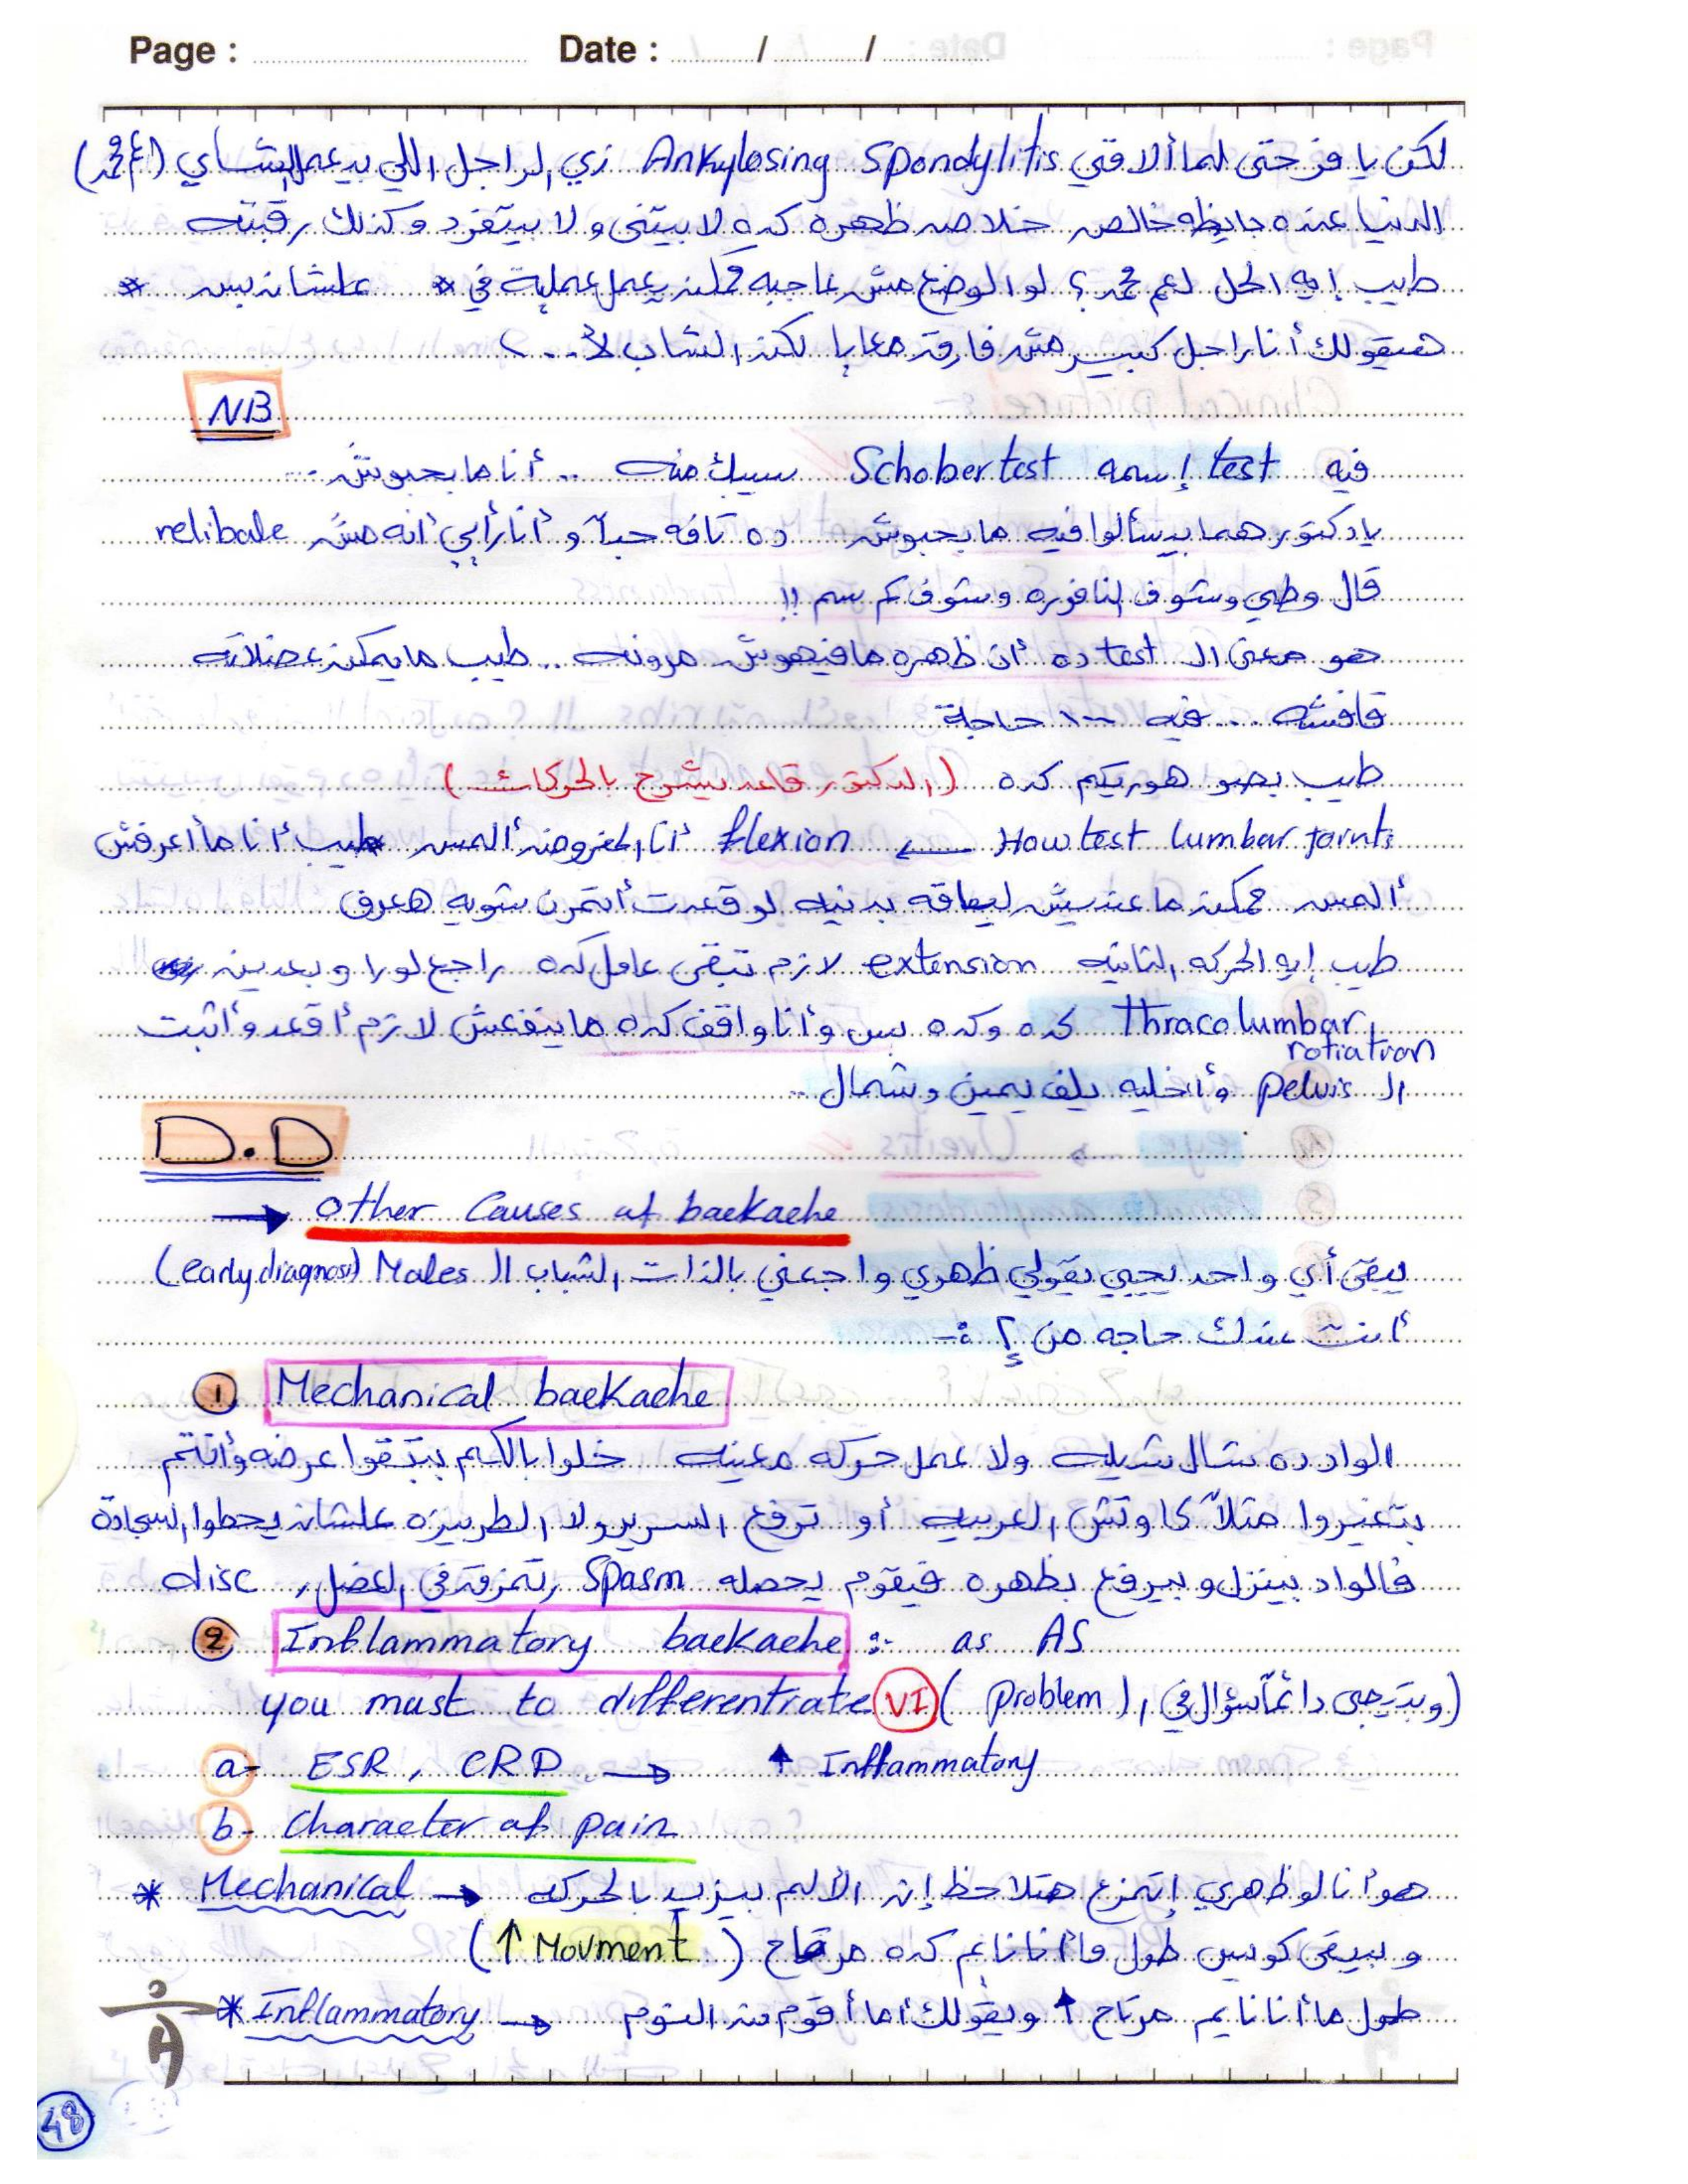 Page : Date : / /
لكن يا فرحتى لما ألاقي Ankylosing Spondylitis زي الراجل اللي بيعمل الشاي (عم محمد)
الدنيا عنده بايظه خالص خلاص ظهره كده لا بيتنى ولا بيتفرد وكذلك رقبته
طيب إيه الحل لعم محمد ؟ لو الوضع مش عاجبه ممكن يعمل عملية في * علشان بس *
هيقولك أنا راجل كبير مش فارقه معايا لكن الشاب لأ ... )
NB
فيه test إسمه Schober test سيبك منه .. أنا ما بحبوش ...
يا دكتور هما بيسألوا فيه ما بحبوش ده تافه جداً و أنا رأيي أنه مش relibale
قال وطي وشوف اتنا فوره وشوف كم سم !!
هو معنى الـ test ده أن ظهره ما فيهوش مرونه .. طيب ما يمكن عضلاته
قافشه ... فيه ١٠٠ حاجة
طيب بصو هوريكم كده ( الدكتور قاعد يشرح بالحركات )
How test lumbar joints ← flexion أنا المفروض ألمس طيب أنا ما أعرفش
ألمس ممكن ما عنديش لياقه بدنيه لو قعدت أتمرن شويه هعرف
طيب إيه الحركه التانيه extension لازم تبقى عامل كده راجع لورا وبعدين
Thracolumbar rotiation كده وكده بس وأنا واقف كده ما ينفعش لازم أقعد وأثبت
الـ pelvis وأخليه يلف يمين وشمال ..
D.D
→ other Causes of backache
يبقى أي واحد يجيي يقولي ظهري واجعني بالذات الشباب الـ Males (early diagnosis)
أنت عندك حاجه من إ ؟ :-
① Mechanical backache
الواد ده شال شيله ولا عمل حركه معينه خلوا بالكم بيتبقوا عرضه وأنتم
بتغيروا مثلاً كاوتش العربيه أو ترفع السرير ولا الطربيزه علشان يحطوا السجادة
فالواد بينزل وبيرفع بظهره فيقوم يحصله Spasm , تمزق في العضل , disc
② Inflammatory backache :- as AS
you must to differentiate VI ( problem وبتيجي دائماً سؤال في الـ)
a- ESR , CRP → ↑ Inflammatory
b- Character of pain
* Mechanical → هو أنا لو ظهري إتمزع هتلاحظ إن الألم بيزيد بالحركه
و بيبقى كويس طول ما أنا نايم كده مرتاح ( ↑ Movment )
* Inflammatory → طول ما أنا نايم مرتاح ↑ ويقولك أما أقوم من النوم
48